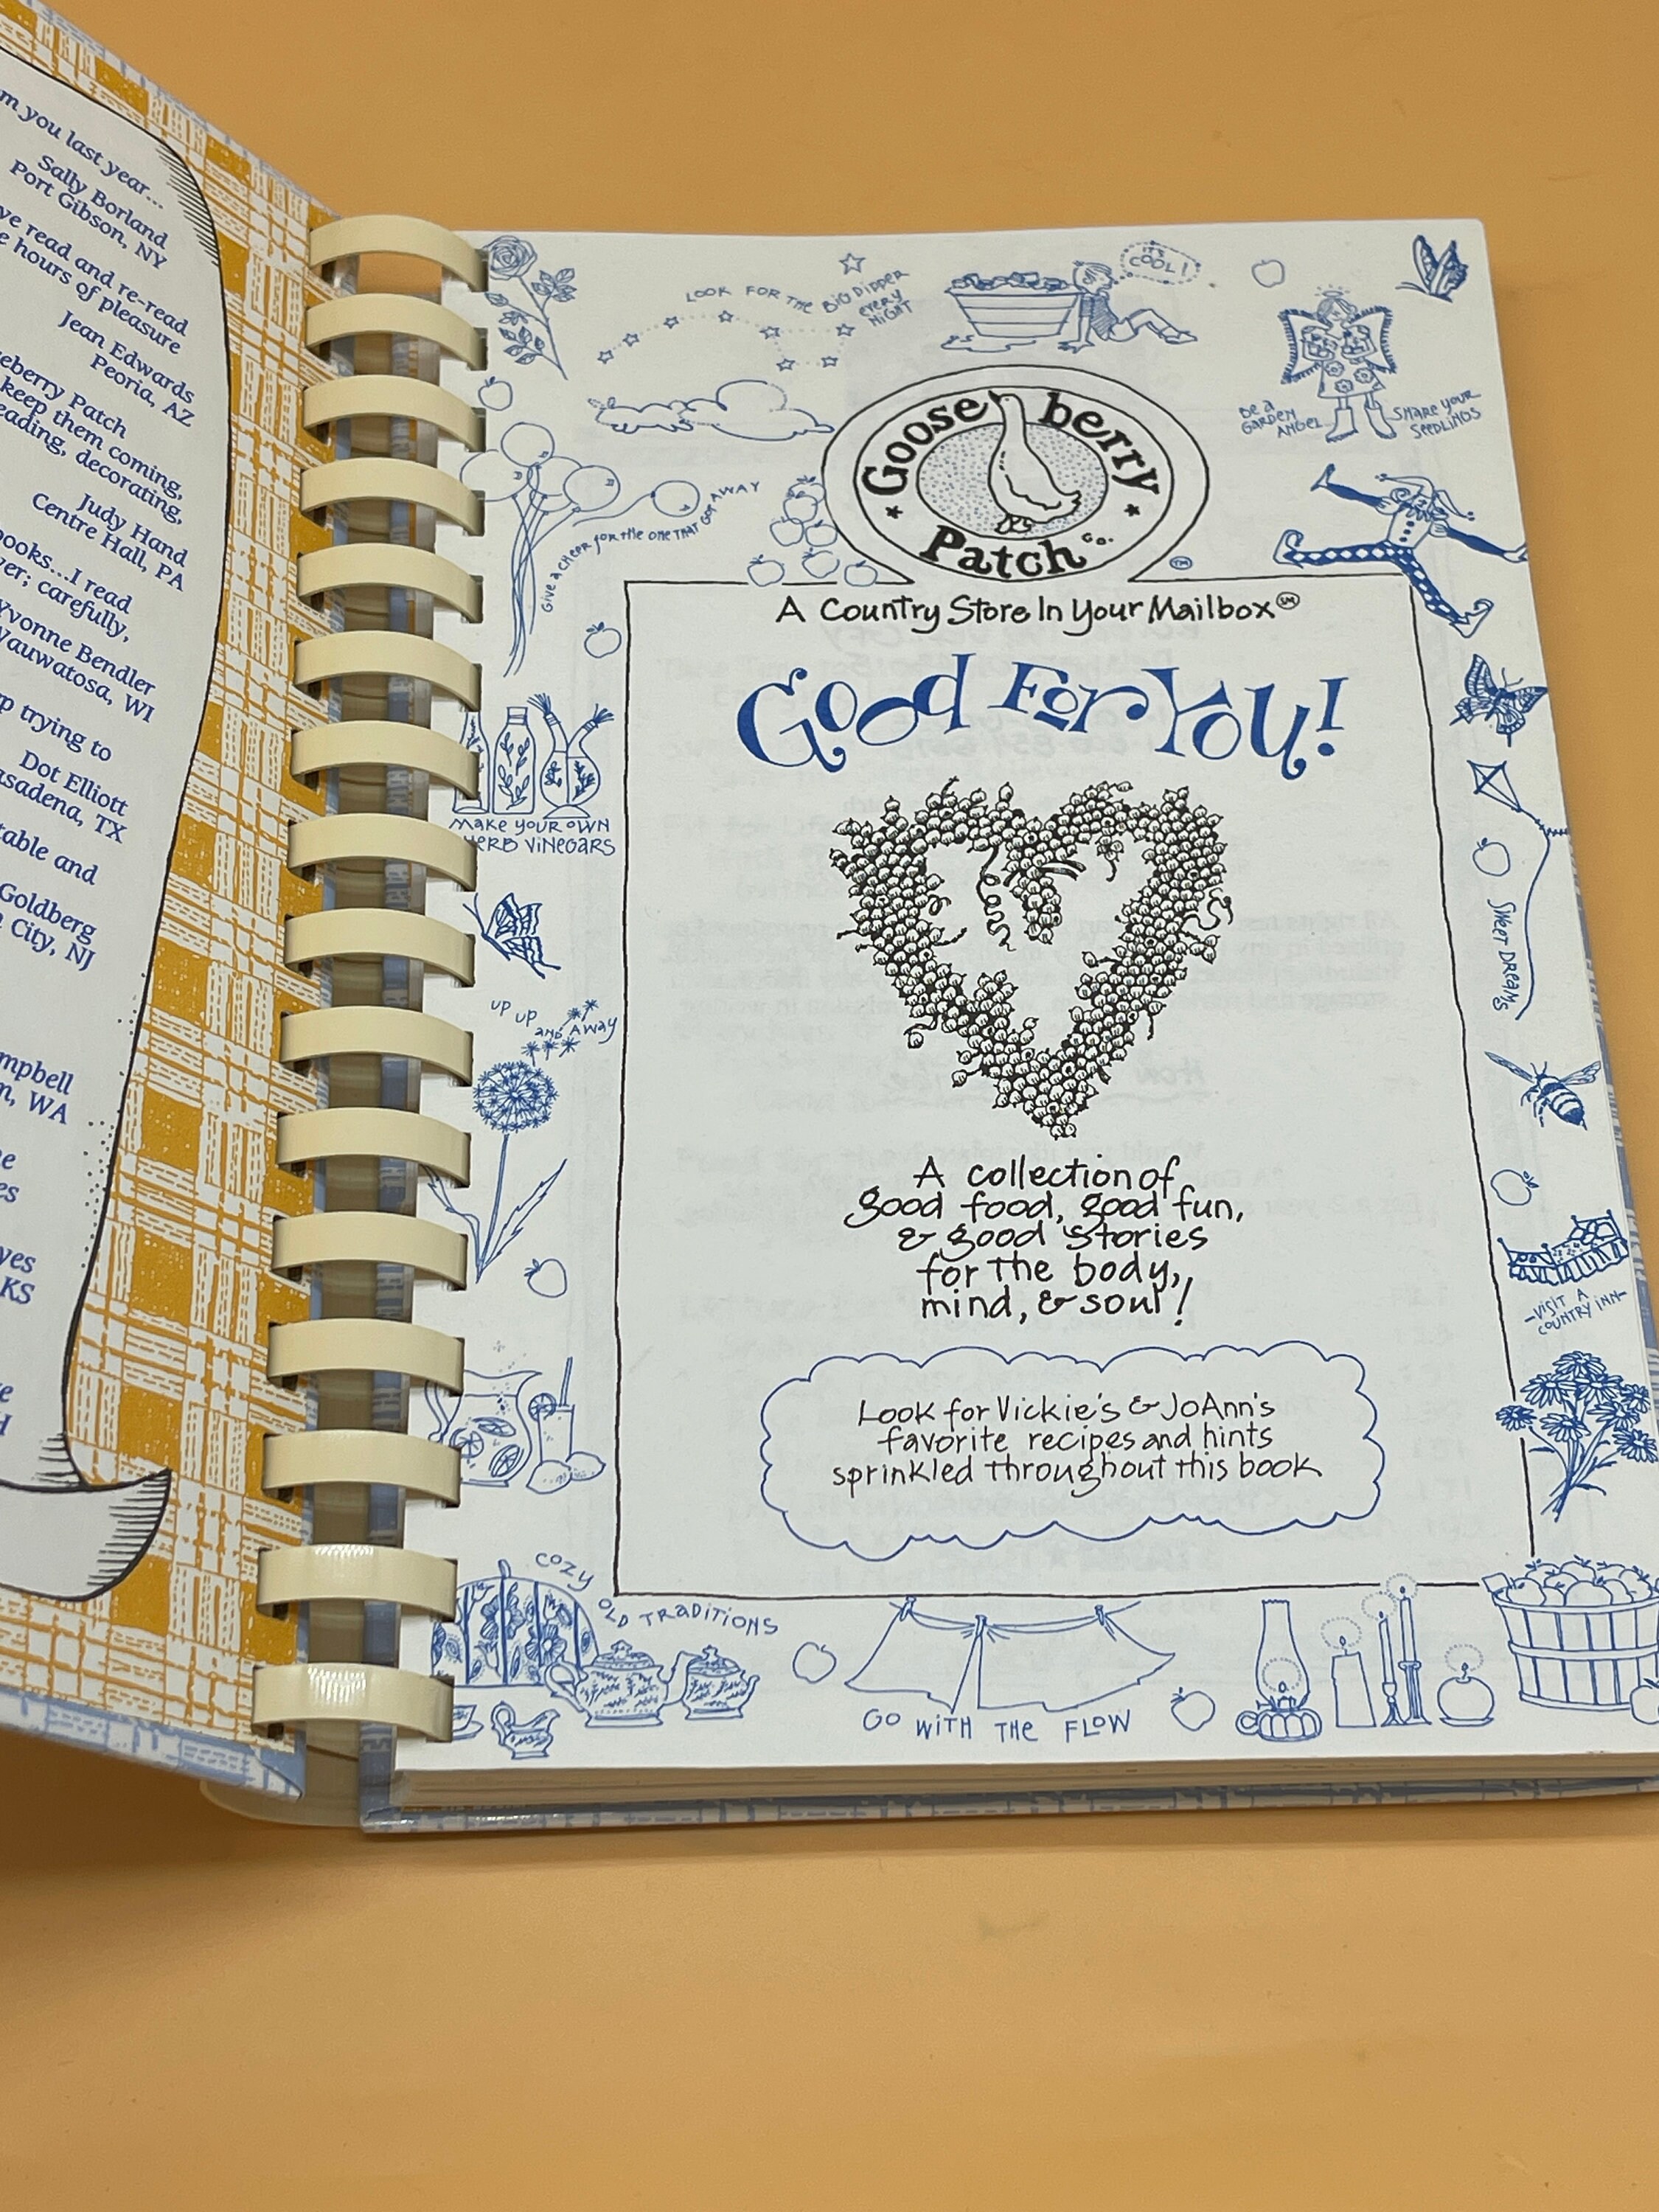 m you last year...
Sally Borland
Port Gibson, NY
ve read and re-read
e hours of pleasure
Jean Edwards
Peoria, AZ
eberry Patch
keep them coming,
eading, decorating,
Judy Hand
Centre Hall, PA
ooks...I read
ver; carefully,
Yvonne Bendler
Wauwatosa, WI
p trying to
Dot Elliott
asadena, TX
table and
Goldberg
City, NJ
mpbell
WA
yes
KS
LOOK FOR THE BIG DIPPER
EVERY
NIGHT
IT'S
COOL!
Be a
GARDEN
ANGEL
SHARE YOUR
SEEDLINGS
Goose berry
Patch Co.
TM
Give a cheer for the one that got away
A Country Store In Your Mailbox SM
Good For You!
MAKE YOUR OWN
HERB VINEGARS
UP UP
AND AWAY
SWEET DREAMS
A collection of
good food, good fun,
& good stories
for the body,
mind, & soul!
-VISIT A
COUNTRY INN-
Look for Vickie's & JoAnn's
favorite recipes and hints
sprinkled throughout this book
COZY
OLD TRADITIONS
GO WITH THE FLOW